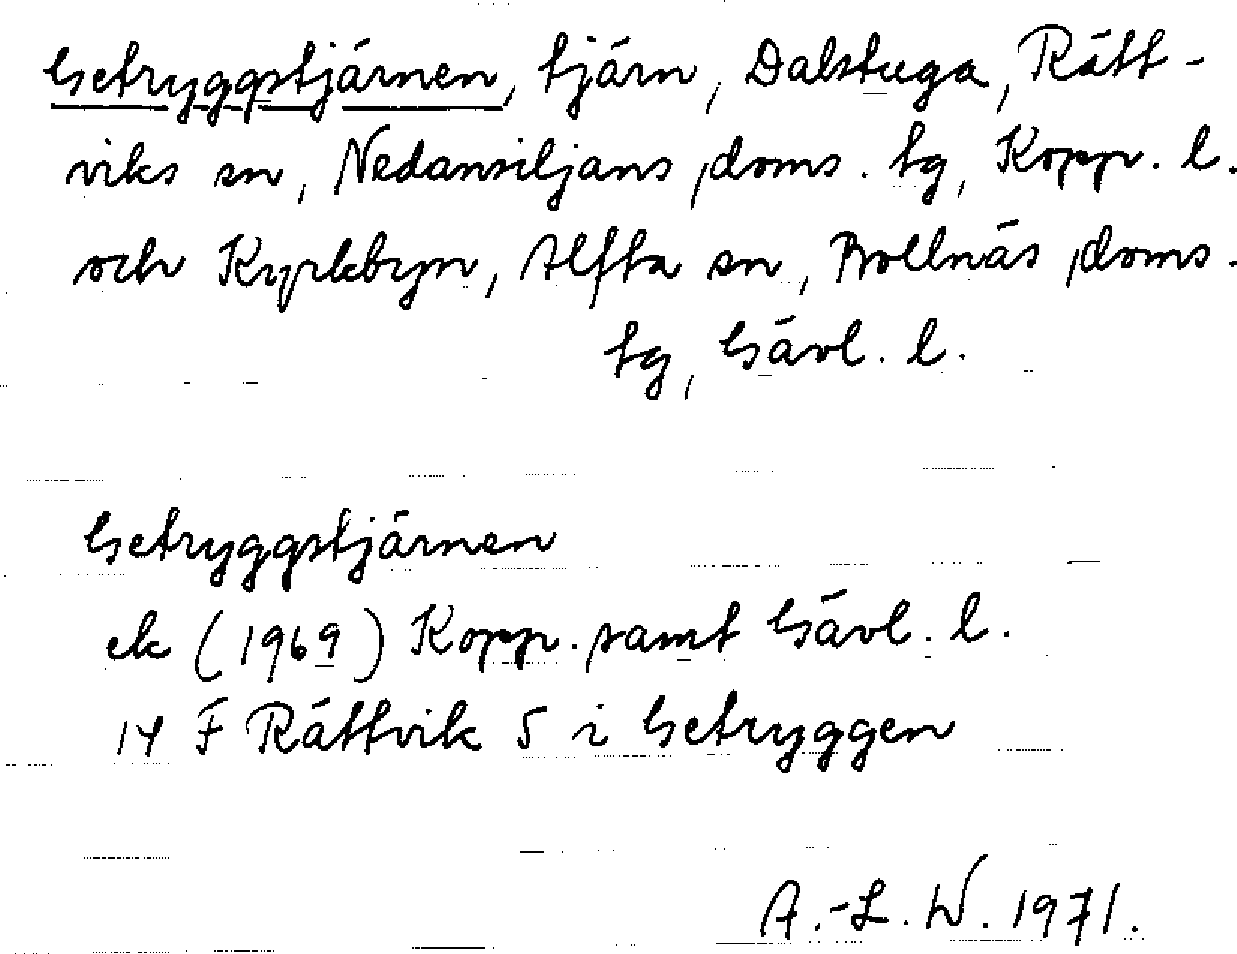 Getryggstjärnen, tjärn, Dalstuga, Rätt-
viks sn, Nedansiljans doms. tg, Kopp. l.
och Kyrkbyn, Alfta sn, Bollnäs doms.
tg, Gävl. l.
Getryggstjärnen
ek (1969) Kopp. samt Gävl. l.
14 F Rättvik 5 i Getryggen
A.-L. W. 1971.